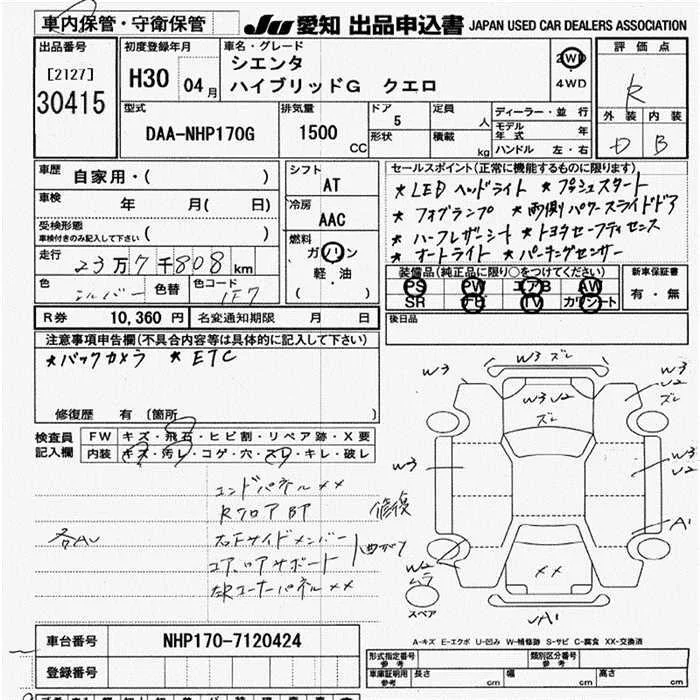 車内保管・守衛保管
JU 愛知 出品申込書 JAPAN USED CAR DEALERS ASSOCIATION
出品番号 [2127] 30415
初度登録年月 H30 04月
車名・グレード
シエンタ
ハイブリッドG クエロ
2WD
4WD
評価点
R
外装 内装
D B
型式 DAA-NHP170G
排気量 1500 CC
ドア 5
形状
定員 人
積載 kg
ディーラー・並行
モデル年式 年
ハンドル 左・右
車歴 自家用・( )
車検 年 月( 日)
受検形態
車検付きのみ記入して下さい ( )
走行 23万7千808km
色 シルバー 色替 色コード 1F7
シフト AT
冷房 AAC
燃料 ガソリン
軽・油
( )
セールスポイント(正常に機能するものに限ります)
★LED ヘッドライト ★プッシュスタート
★フォグランプ ★両側パワースライドドア
★ハーフレザーシート ★トヨタセーフティセンス
★オートライト ★パーキングセンサー
装備品(純正品に限り○をつけてください)
PS PW エアB AW
SR ナビ TV カワシート
新車保証書
有・無
後日品
R券 10,360 円 名変通知期限 月 日
注意事項申告欄(不具合内容等は具体的に記入して下さい)
★バックカメラ ★ETC
修復歴 有 〔箇所 〕
検査員記入欄
FW キズ・飛石・ヒビ割・リペア跡・X要
内装 キズ・汚レ・コゲ・穴・スレ・キレ・破レ
エンドパネルXX
Rフロア BP 修復
右下サイドメンバー
W3 スレ
W3
W3 U2 スレ
W3 U2 スレ
W3
W3 U2
A1
W2 ムラ
スペア
XX
A1
A-キズ E-エクボ U-凹み W-補修跡 S-サビ C-腐食 XX-交換済
車台番号 NHP170-7120424
登録番号
形式指定番号 参考
類別区分番号 参考
車庫証明用 参考 長さ cm 幅 cm 高さ cm